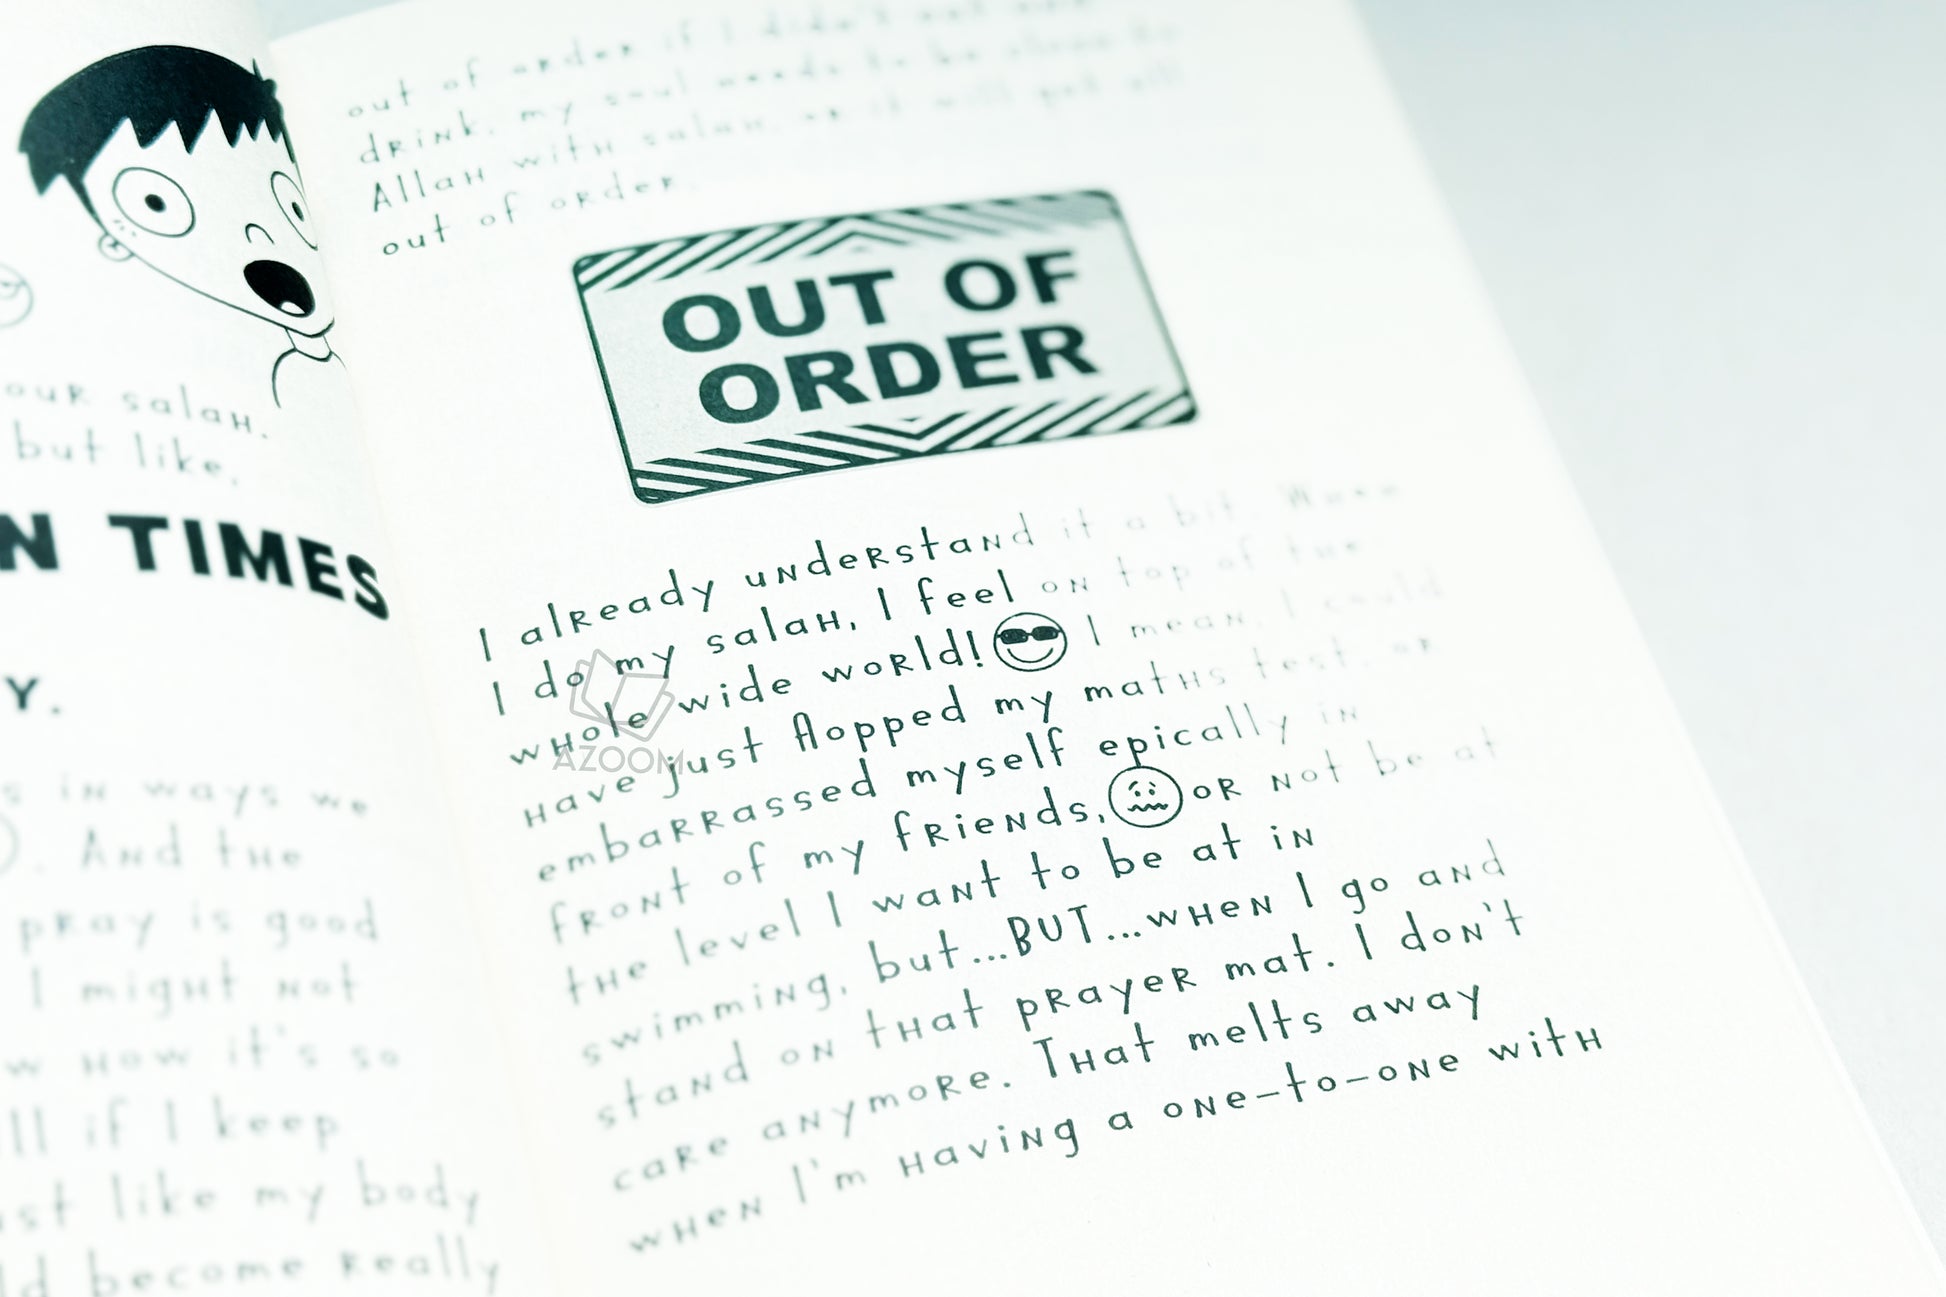 our salah.
but like,
N TIMES
Y.
s in ways we
. And the
pray is good
I might not
w how it's so
ll if I keep
st like my body
ld become really
out of order if I didn't eat and
drink, my soul needs to be close to
Allah with salah, or it will get all
out of order.
OUT OF
ORDER
I already understand it a bit. When
I do my salah, I feel on top of the
whole wide world! I mean, I could
have just flopped my maths test, or
embarrassed myself epically in
front of my friends, or not be at
the level I want to be at in
swimming, but...BUT...when I go and
stand on that prayer mat. I don't
care anymore. That melts away
when I'm having a one-to-one with
AZOOM